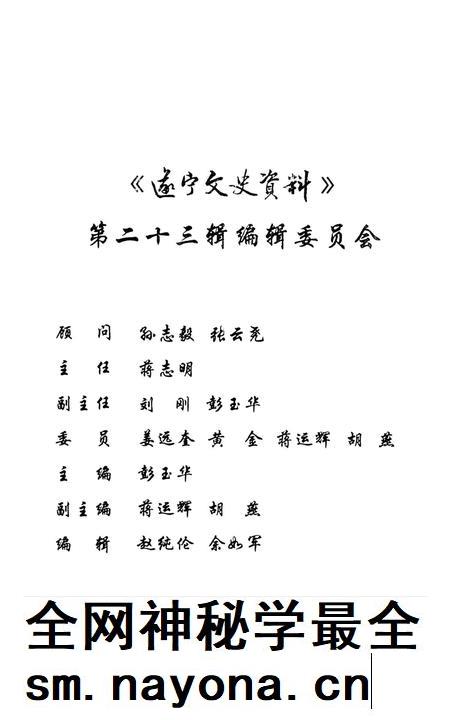 《遂宁文史資料》
第二十三辑编辑委员会
顾 问 孙志毅 张云尧
主 任 蒋志明
副主任 刘 刚 彭玉华
委 员 姜远奎 黄 金 蒋运辉 胡 燕
主 编 彭玉华
副主编 蒋运辉 胡 燕
编 辑 赵纯伦 余如军
全网神秘学最全
sm.nayona.cn